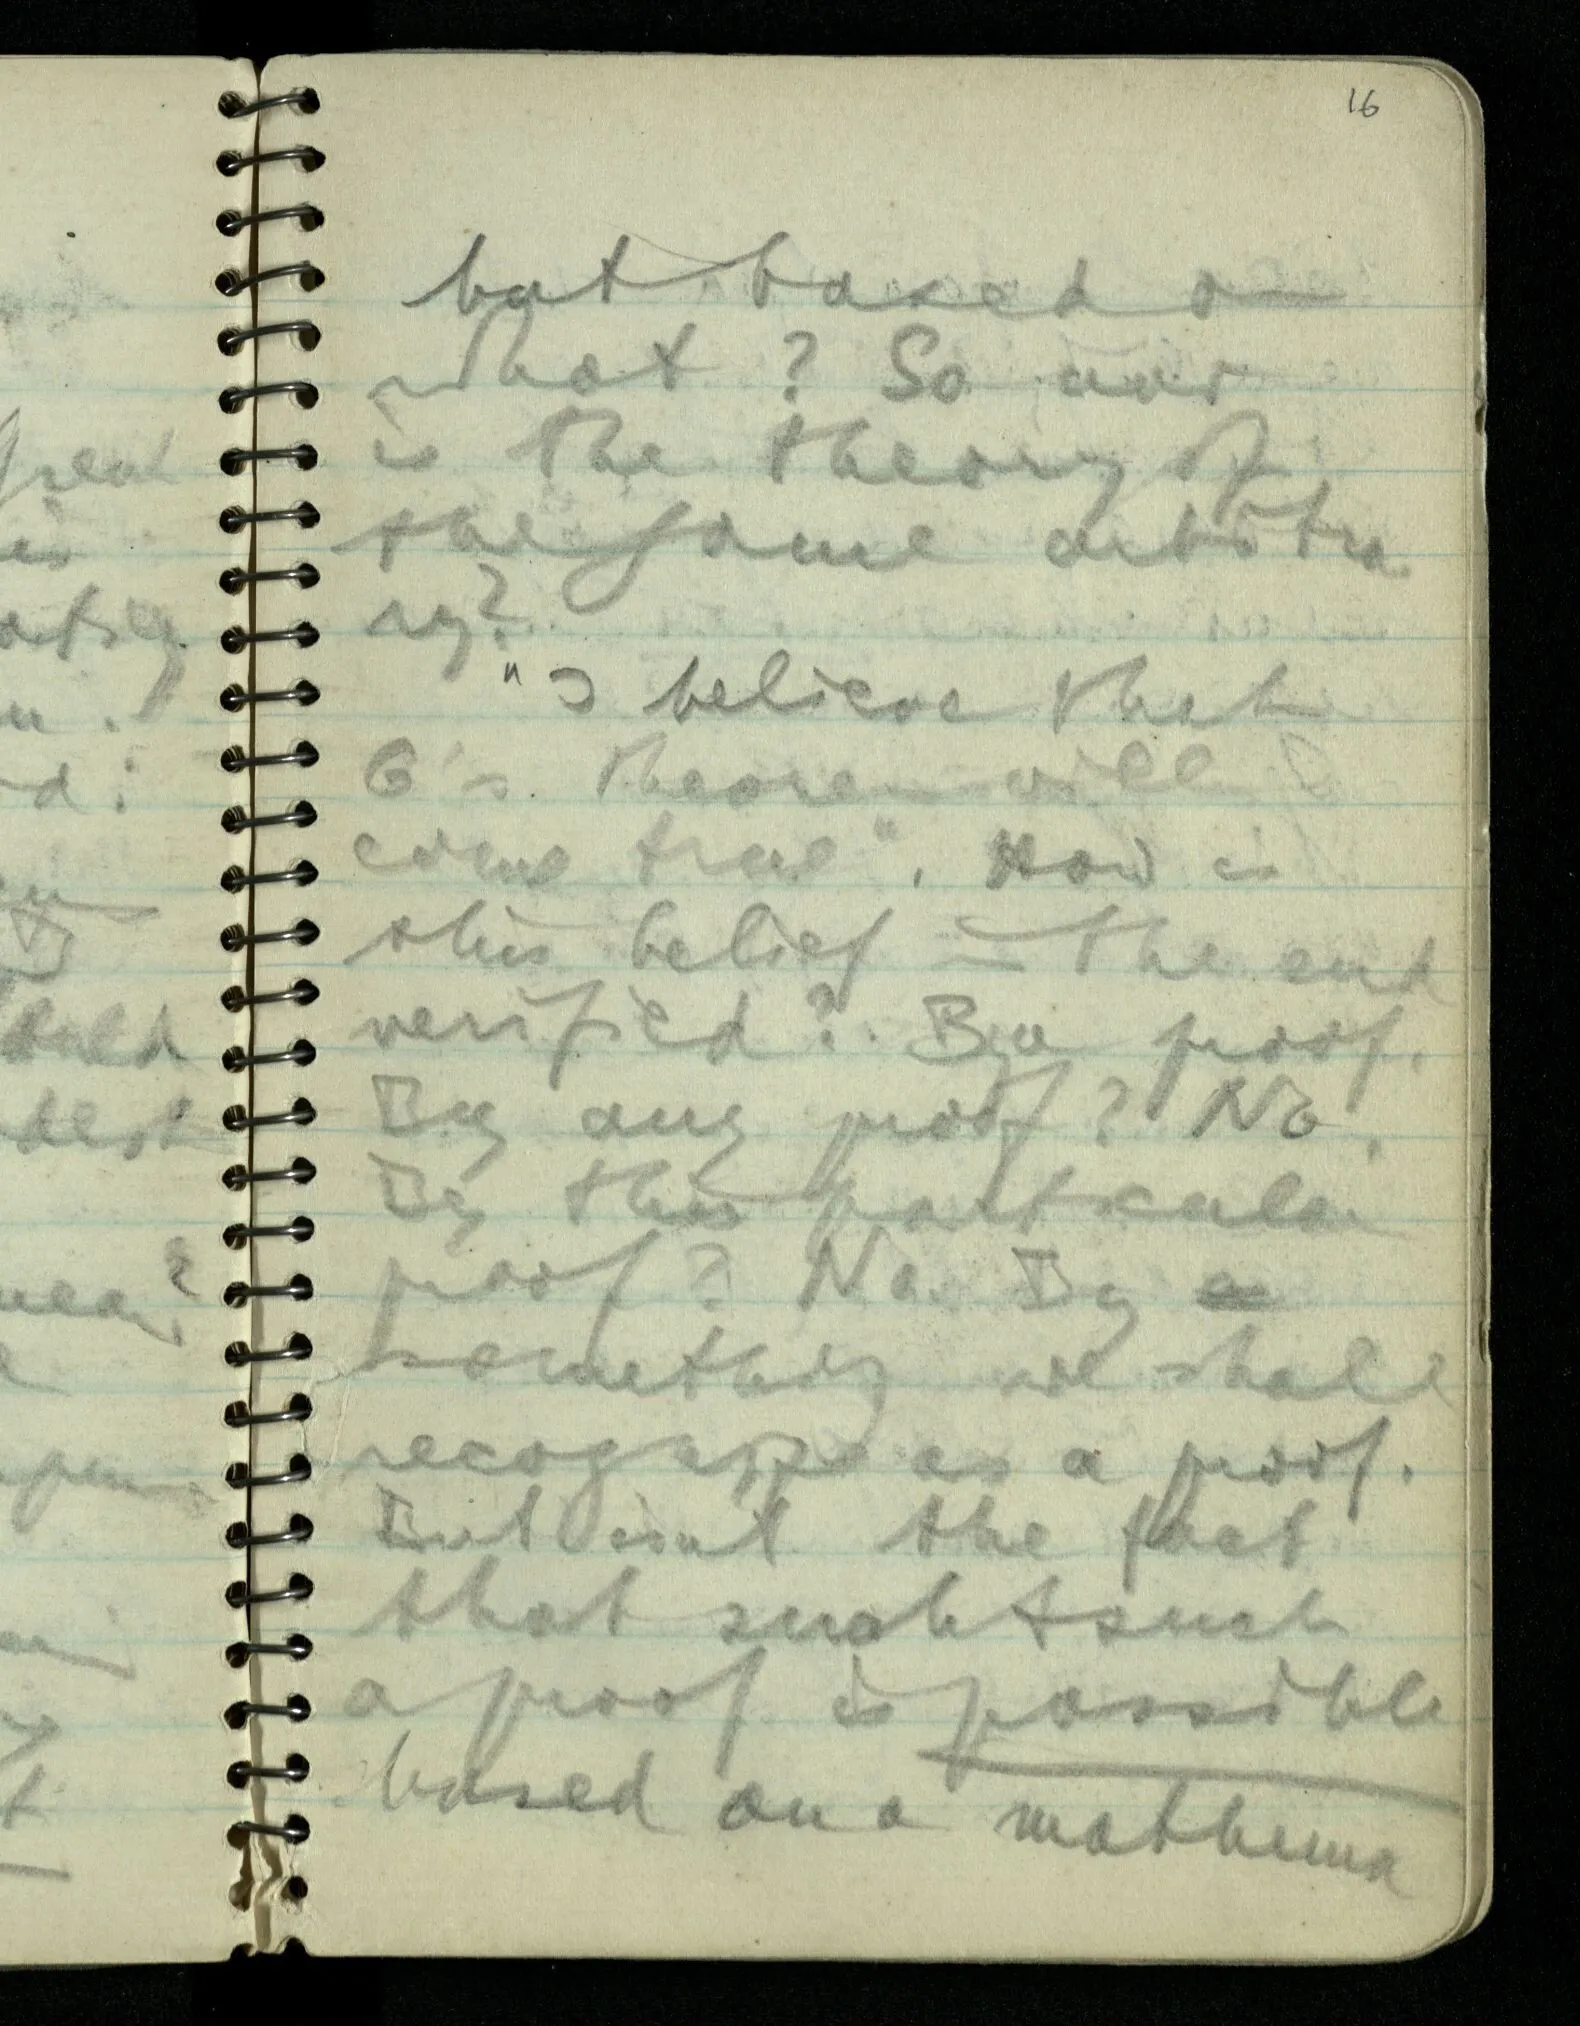 16
but based on
what? So our
is the theory of
the game arbitra
ry?
"I believe that
G's theorem will
come true". How is
this belief in the end
verified? By a proof.
By any proof? No.
By this particular
proof? No. By
something we shall
recognize as a proof.
But isn't the fact
that such
a proof is possible
based on a mathema